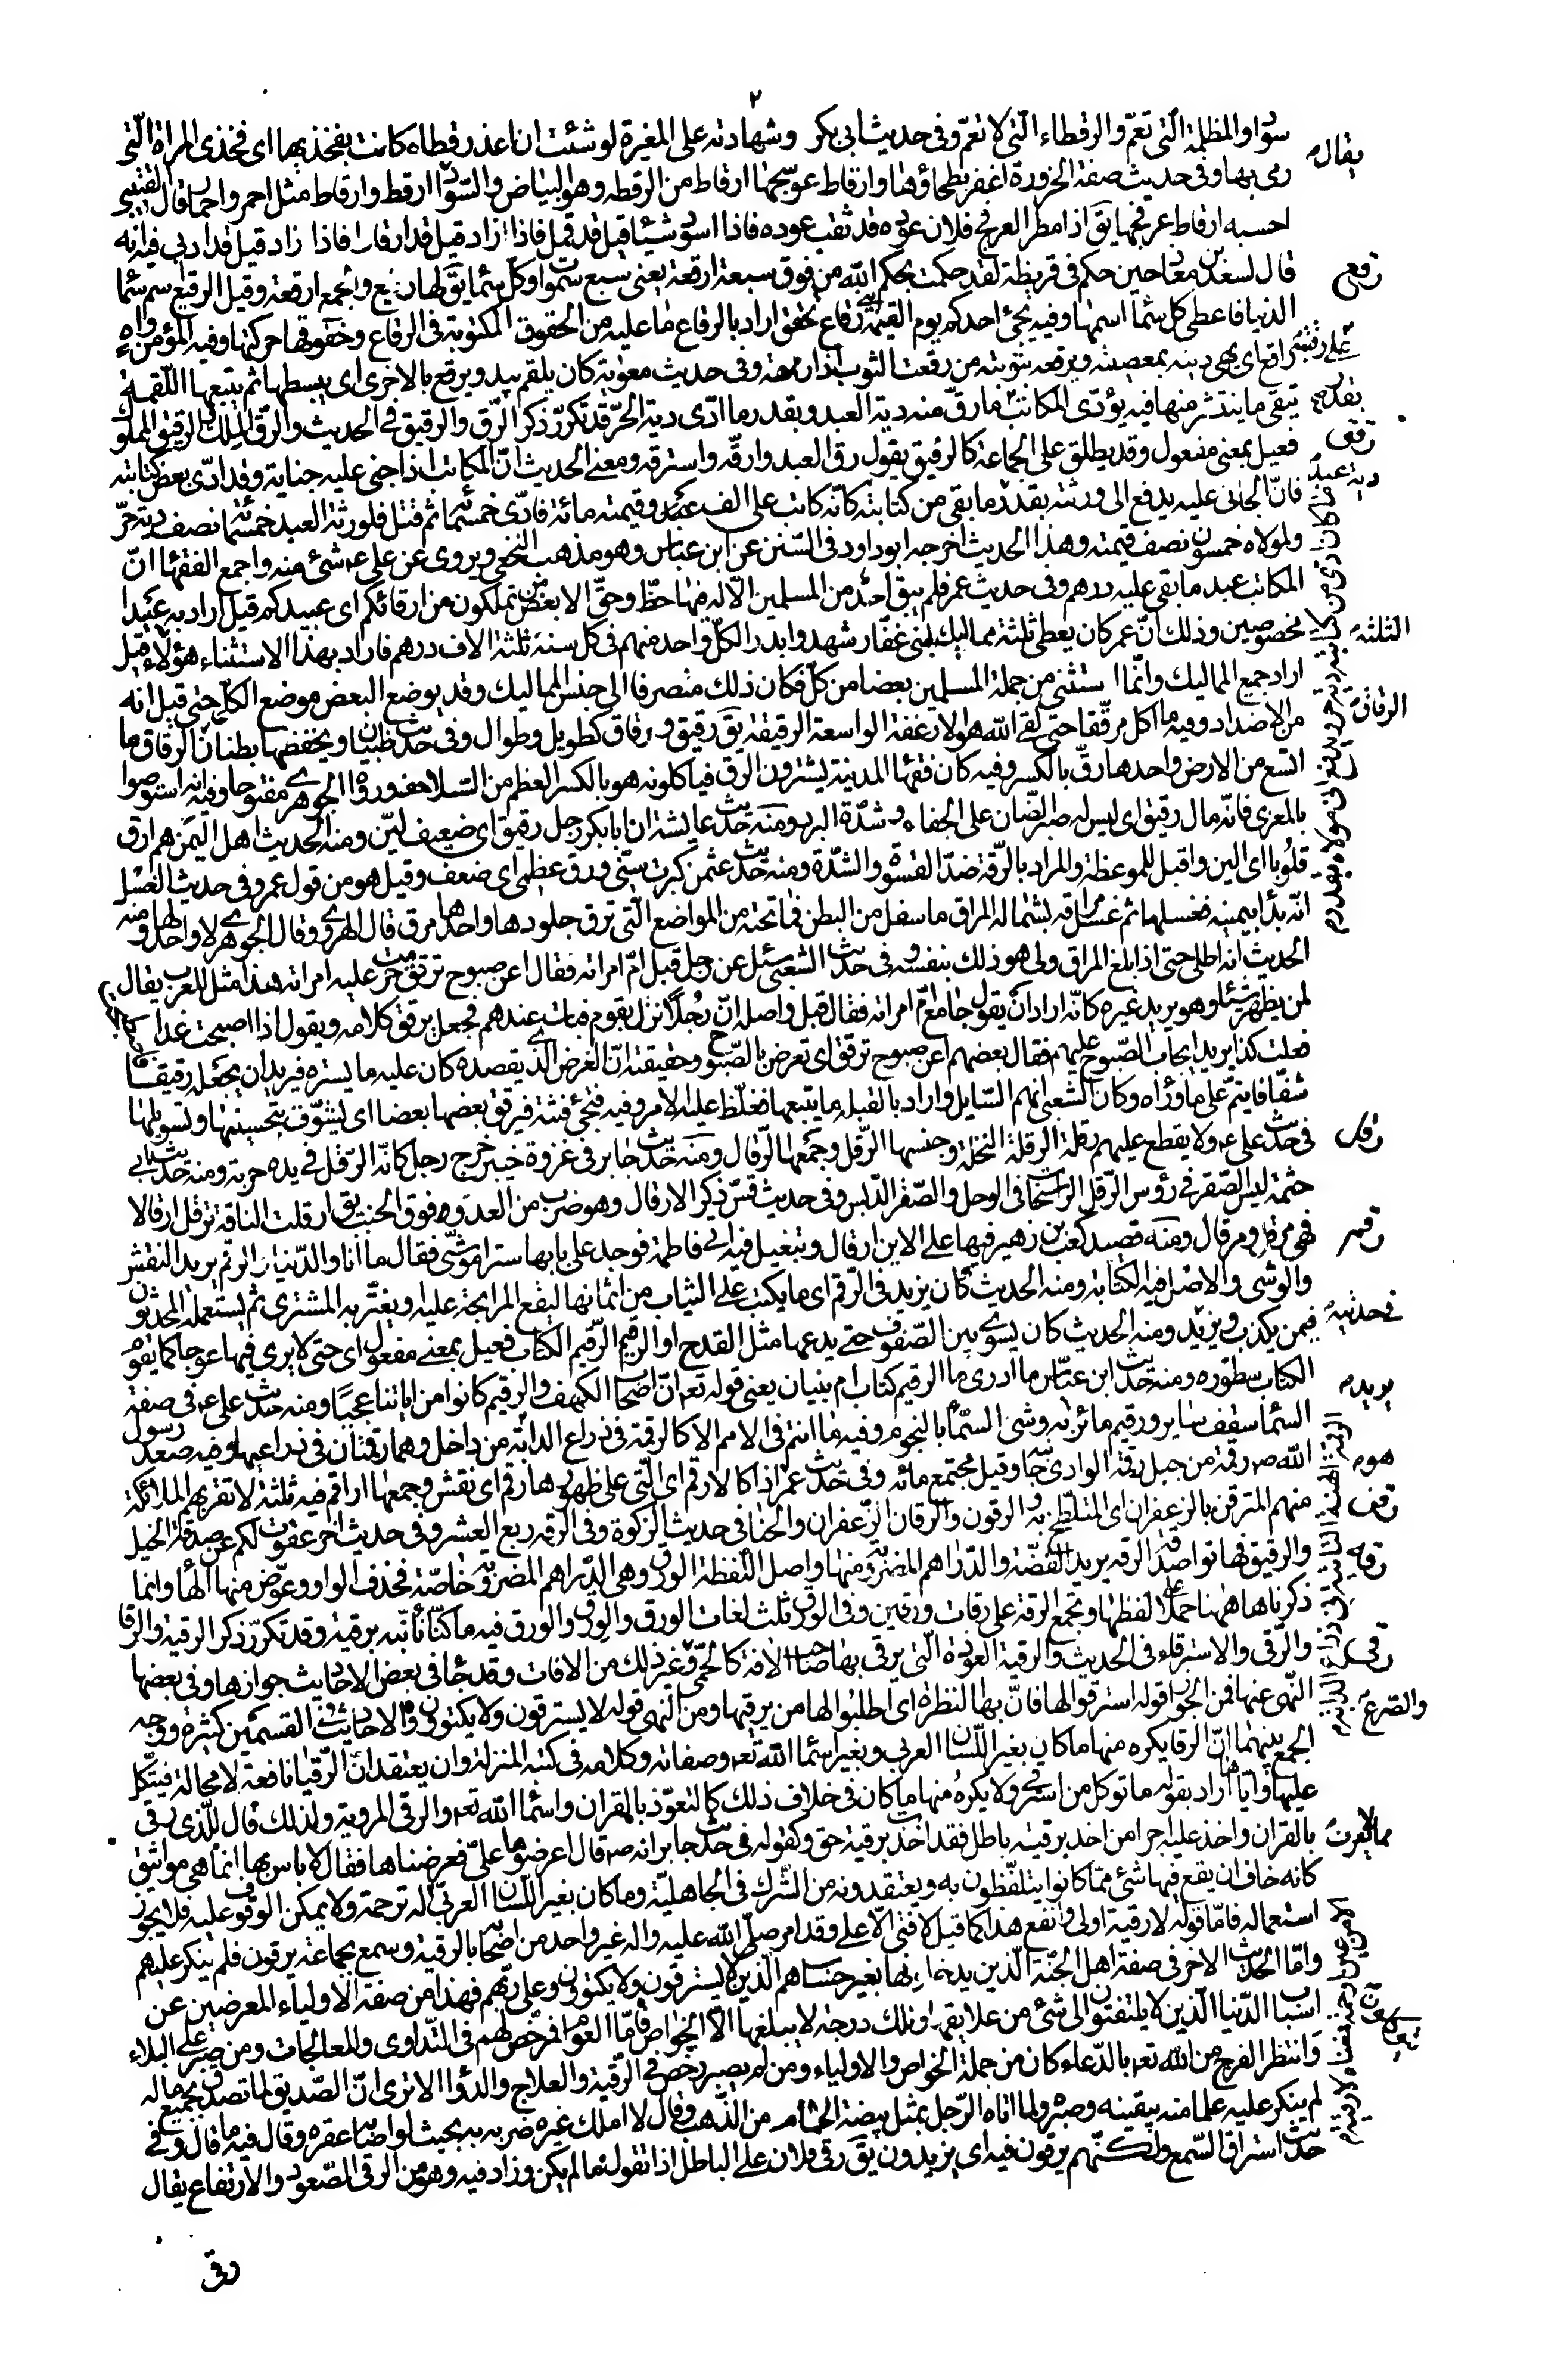 ٢
سواد والمظلمة التى تعم والرقطاء التى لا تعم وفى حديث ابى بكر وشهادته على المغيرة لو شئت ان اعد رقطا كانت بفخذيها اى فخذى المراة التى
رمى بها وفى حديث صفة الحزورة اغفر بطحاؤها وارقاط عوسجها ارقاط من الرقطه وهو البياض والسواد ارقط وارقاط مثل احمر واحمار قال القتيبى
احسبه ارقاط عرفجها يق اذا مطر العرفج فلان عوده قد ثقب عوده فاذا اسود شيئا قيل قد قمل فاذا زاد قيل قد ارقاط فاذا زاد قيل قد ادبى فيه انه
قال لسعد بن معاذ حين حكم فى قريظة لقد حكمت بحكم الله من فوق سبعة ارقعة يعنى سبع سموات وكل سما يق لها رقيع والجمع ارقعة وقيل الرقيع اسم سما
الدنيا فاعطى كل سماء اسمها وفيه يجئ احدكم يوم القيمة على رقبته رقاع تخفق اراد بالرقاع ما عليه من الحقوق المكتوبة فى الرقاع وخفوقها حركتها وفيه المؤمن واه
راقع اى يهى دينه بمعصيته ويرقعه بتوبته من رقعت الثوب اذا رممته وفى حديث معوية كان يلقم بيد ويرقع بالاخرى اى يبسطها ثم يتبعها اللقمة
يتقى ما ينتثر منها فيه يؤدى المكاتب بقدر ما رق منه دية العبد وبقدر ما ادى دية الحر قد تكرر ذكر الرق والرقيق فى الحديث والرق الملك والرقيق المملوك
فعيل بمعنى مفعول وقد يطلق على الجماعة كالرفيق يقول رق العبد وارقه واسترقه ومعنى الحديث ان المكاتب اذا جنى عليه جناية وقد ادى بعض كتابته
فان الجانى عليه يدفع الى ورثته بقدر ما بقى من كتابته كانه كاتب على الف وقيمته مائة فادى خمسمائة ثم قتل فلورثة العبد خمسمائة نصف دية حر
ولمولاه خمسون نصف قيمته وهذا الحديث اخرجه ابو داود فى السنن عن ابن عباس وهو مذهب النخعى ويروى عن على ع شئ منه واجمع الفقها ان
المكاتب عبد ما بقى عليه درهم وفى حديث عمر فلم يبق احد من المسلمين الا له فيها حظ وحق الا بعض من تملكون من ارقائكم اى عبيدكم قيل اراد به عبيدا
مخصوصين وذلك ان عمر كان يعطى ثلثة مماليك لبنى غفار شهدوا بدرا لكل واحد منهم فى كل سنة ثلثة الاف درهم فاراد بهذا الاستثناء هؤلاء الثلثة وقيل
اراد جميع المماليك وانما استثنى من جملة المسلمين بعضا من كل فكان ذلك منصرفا الى جنس المماليك وقد يوضع البعض موضع الكل حتى قيل انه
من الاضداد وفيه ما اكل مرققا حتى لقى الله هو الارغفة الواسعة الرقيقة يق رقيق ورقاق كطويل وطوال وفى حديث ظبيان ويخفضها بطنان الرقاق الرقاق ما
اتسع من الارض واحدها رق بالكسر وفيه كان فقها المدينة يشترون الرق فياكلونه هو بالكسر العظيم من السلاحف ورواه الجوهرى مفتوحا وفيه استوصوا
بالمعزى فانه مال رقيق اى ليس له صبر الضان على الجفاء وشدة البرد ومنه حديث عايشة ان ابا بكر رجل رقيق اى ضعيف لين ومنه الحديث اهل اليمن هم ارق
قلوبا اى الين واقبل للموعظة والمراد بالرقة ضد القسوة والشدة ومنه حديث عثمن كبرت سنى ورق عظمى اى ضعف وقيل هو من قول عمر وفى حديث الغسل
انه بدا بيمينه فغسلها ثم غسل مراقه بشماله المراق ما سفل من البطن فما تحته من المواضع التى ترق جلودها واحدها مرق قال الهروى وقال الجوهرى لا واحد لها ومنه
الحديث انه اطلى حتى اذا بلغ المراق ولى هو ذلك بنفسه وفى حديث الشعبى سئل عن رجل قبل ام امراته فقال اعن صبوح ترقق حرمت عليه امراته هذا مثل للعرب يقال
لمن يظهر شيئا وهو يريد غيره كانه اراد ان يقول جامع ام امراته فقال قبل واصله ان رجلا نزل بقوم فبات عندهم فجعل يرقق كلامه ويقول اذا اصبحت غدا
فعلت كذا يريد ايجاب الصبوح عليهم فقال بعضهم اعن صبوح ترقق اى تعرض بالصبوح وحقيقته ان الغرض الذى يقصده كان عليه ما يستره فيريد ان يجعله رقيقا
شفافا ينم على ما وراه وكان الشعبى اتهم السايل واراد بالقبلة ما يتبعها فغلظ عليه الامر وفيه فتجئ فتنة فيرقق بعضها بعضا اى يشوق بتحسينها وتسويلها
فى حديث على ع ولا يقطع عليهم رقلة الرقلة النخلة وجنسها الرقل وجمعها الرقال ومنه حديث جابر فى غزوة خيبر خرج رجل كانه الرقل فى يده حربة ومنه حديث ابى
حثمة ليس الصقر فى رؤس الرقل الراسخات فى الوحل والصقر الدبس وفى حديث قس ذكر الارقال وهو ضرب من العدو فوق الخبب يق ارقلت الناقة ترقل ارقالا
فهى مرقل ومرقال ومنه قصيد كعب بن زهير فيها على الاين ارقال وتبغيل فيه اتى فاطمة فوجد على بابها سترا موشى فقال ما انا والدنيا والرقم يريد النقش
والوشى والاصل فيه الكتابة ومنه الحديث كان يزيد فى الرقم اى ما يكتب على الثياب من اثمانها ليقع المرابحة عليه ويغتر به المشترى ثم يستعمله المحدثون
فيمن يكذب ويزيد فى حديثه ومنه الحديث كان يسوى بين الصفوف حتى يدعها مثل القدح او الرقيم الرقيم الكتاب فعيل بمعنى مفعول اى حتى لا يرى فيها عوجا كما يقوم
الكتاب سطوره ومنه حديث ابن عباس ما ادرى ما الرقيم كتاب ام بنيان يعنى قوله تع ان اصحاب الكهف والرقيم كانوا من اياتنا عجبا ومنه حديث على ع فى صفة
السما سقف ساير ورقيم مائر يريد به وشى السما بالنجوم وفيه ما انتم فى الامم الا كالرقمة فى ذراع الدابة من داخل وهما رقمتان فى ذراعيها وفيه صعد رسول
الله ص رقمة من جبل رقمة الوادى جانبه وقيل مجتمع مائه وفى حديث عمر هو اذا كالارقم اى التى على ظهرها رقم اى نقش وجمعها اراقم فيه ثلثة لا تقربهم الملائكة
منهم المترقن بالزعفران اى المتلطخ به والرقون والرقان الزعفران والحنا فى حديث الزكوة وفى الرقه ربع العشر وفى حديث اخر عفوت لكم عن صدقة الخيل
والرقيق فهاتوا صدقة الرقه يريد الفضة والدراهم المضروبة منها واصل اللفظة الورق وهى الدراهم المضروبة خاصة فحذف الواو وعوض منها الها وانما
ذكرناها ههنا حملا على لفظها وتجمع الرقة على رقات ورقين وفى الورق ثلث لغات الورق والورق والورق فيه ما كنا نأبنه برقية وقد تكرر ذكر الرقية والرقا
والرقى والاسترقاء فى الحديث والرقية العوذة التى يرقى بها صاحب الافة كالحمى والصرع وغير ذلك من الافات وقد جا فى بعض الاحاديث جوازها وفى بعضها
النهى عنها فمن الجواز قوله استرقوا لها فان بها النظرة اى اطلبوا لها من يرقيها ومن النهى قوله لا يسترقون ولا يكتوون والاحاديث فى القسمين كثيرة ووجه
الجمع بينهما ان الرقا يكره منها ما كان بغير اللسان العربى وبغير اسما الله تع وصفاته وكلامه فى كتبه المنزلة وان يعتقد ان الرقيا نافعة لا محالة فيتكل
عليها واياها اراد بقوله ما توكل من استرقى ولا يكره منها ما كان فى خلاف ذلك كالتعوذ بالقران واسما الله تع والرقى المروية ولذلك قال للذى رقى
بالقران واخذ عليه اجرا من اخذ برقية باطل فقد اخذت برقية حق وكقوله فى حديث جابر انه ص قال اعرضوها على فعرضناها فقال لا باس بها انما هى مواثيق
كانه خاف ان يقع فيها شئ مما كانوا يتلفظون به ويعتقدونه من الشرك فى الجاهلية وما كان بغير اللسان العربى مما لا يعرف له ترجمة ولا يمكن الوقوف عليه فلا يجوز
استعماله فاما قوله لا رقية اولى وانفع هذا كما قيل لا فتى الا على وقد امر صلى الله عليه واله غير واحد من اصحابه بالرقية وسمع بجماعة يرقون فلم ينكر عليهم
واما الحديث الاخر فى صفة اهل الجنة الذين يدخلونها بغير حساب هم الذين لا يسترقون ولا يكتوون وعلى ربهم فهذا من صفة الاولياء المعرضين عن
اسباب الدنيا الذين لا يلتفتون الى شئ من علايقها وتلك درجة لا يبلغها الا الخواص فاما العوام فرخص لهم فى التداوى والمعالجات ومن صبر على البلاء
وانتظر الفرج من الله تع بالدعاء كان من جملة الخواص والاولياء ومن لم يصبر رخص فى الرقية والعلاج والدوا الا ترى ان الصديق لما تصدق بجميع ماله
لم ينكر عليه علما منه بيقينه وصبره ولما اتاه الرجل بمثل بيضة الحمام من الذهب وقال لا املك غيره ضربه به بحيث لو اصابه عقره وقال فيه ما قال وفى
حديث استراق السمع ولكنهم يرقون فيه اى يزيدون يق رقى فلان على الباطل اذا تقول ما لم يكن وزاد فيه وهو من الرقى الصعود والارتفاع يقال
رقى